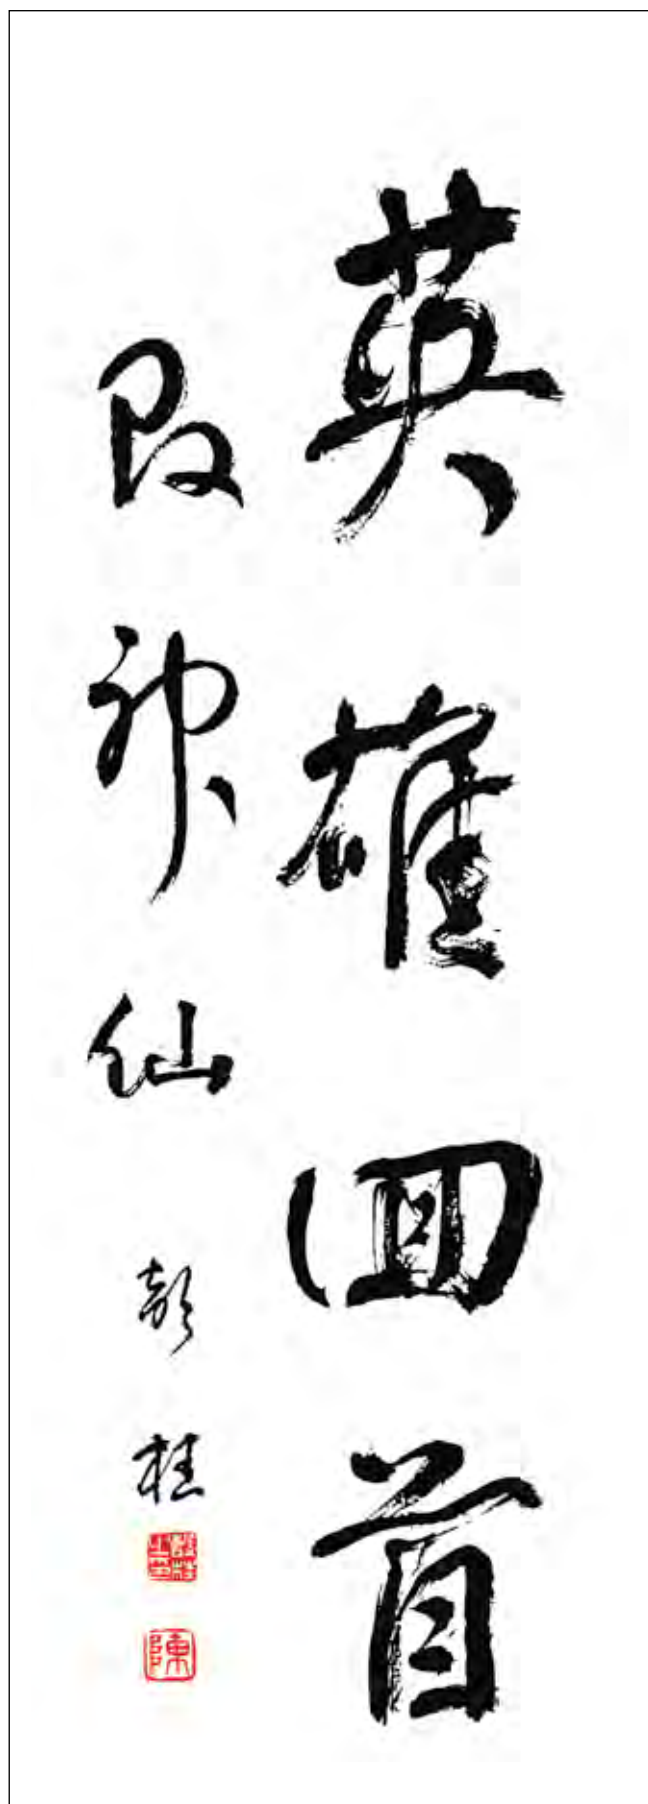 英雄回首
即神仙 彭桂
陳